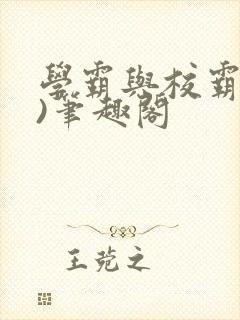 學霸與校霸
)筆趣閣
王菀之